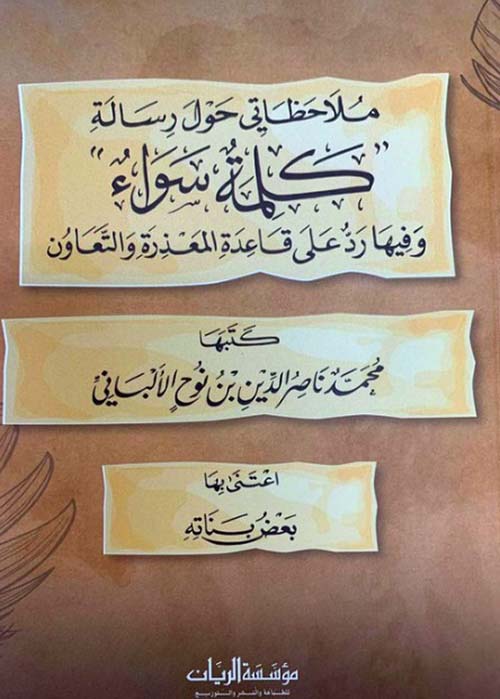 مُلَاحَظَاتِي حَوْلَ رِسَالَةِ
"كَلِمَةٌ سَوَاءٌ"
وَفِيهَا رَدٌّ عَلَى قَاعِدَةِ المَعْذِرَةِ وَالتَّعَاوُن
كَتَبَهَا
مُحَمَّد نَاصِرُ الدِّينِ بْنُ نُوحٍ الأَلْبَانِيّ
اعْتَنَى بِهَا
بَعْضُ بَنَاتِهِ
مؤسَسَة الريَان
للطباعة والنشر والتوزيع